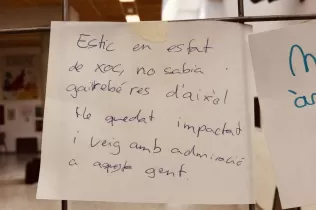 Estic en estat
de xoc, no sabia
gairebé res d'això!
He quedat impactat
i veig amb admiració
a aquesta gent.